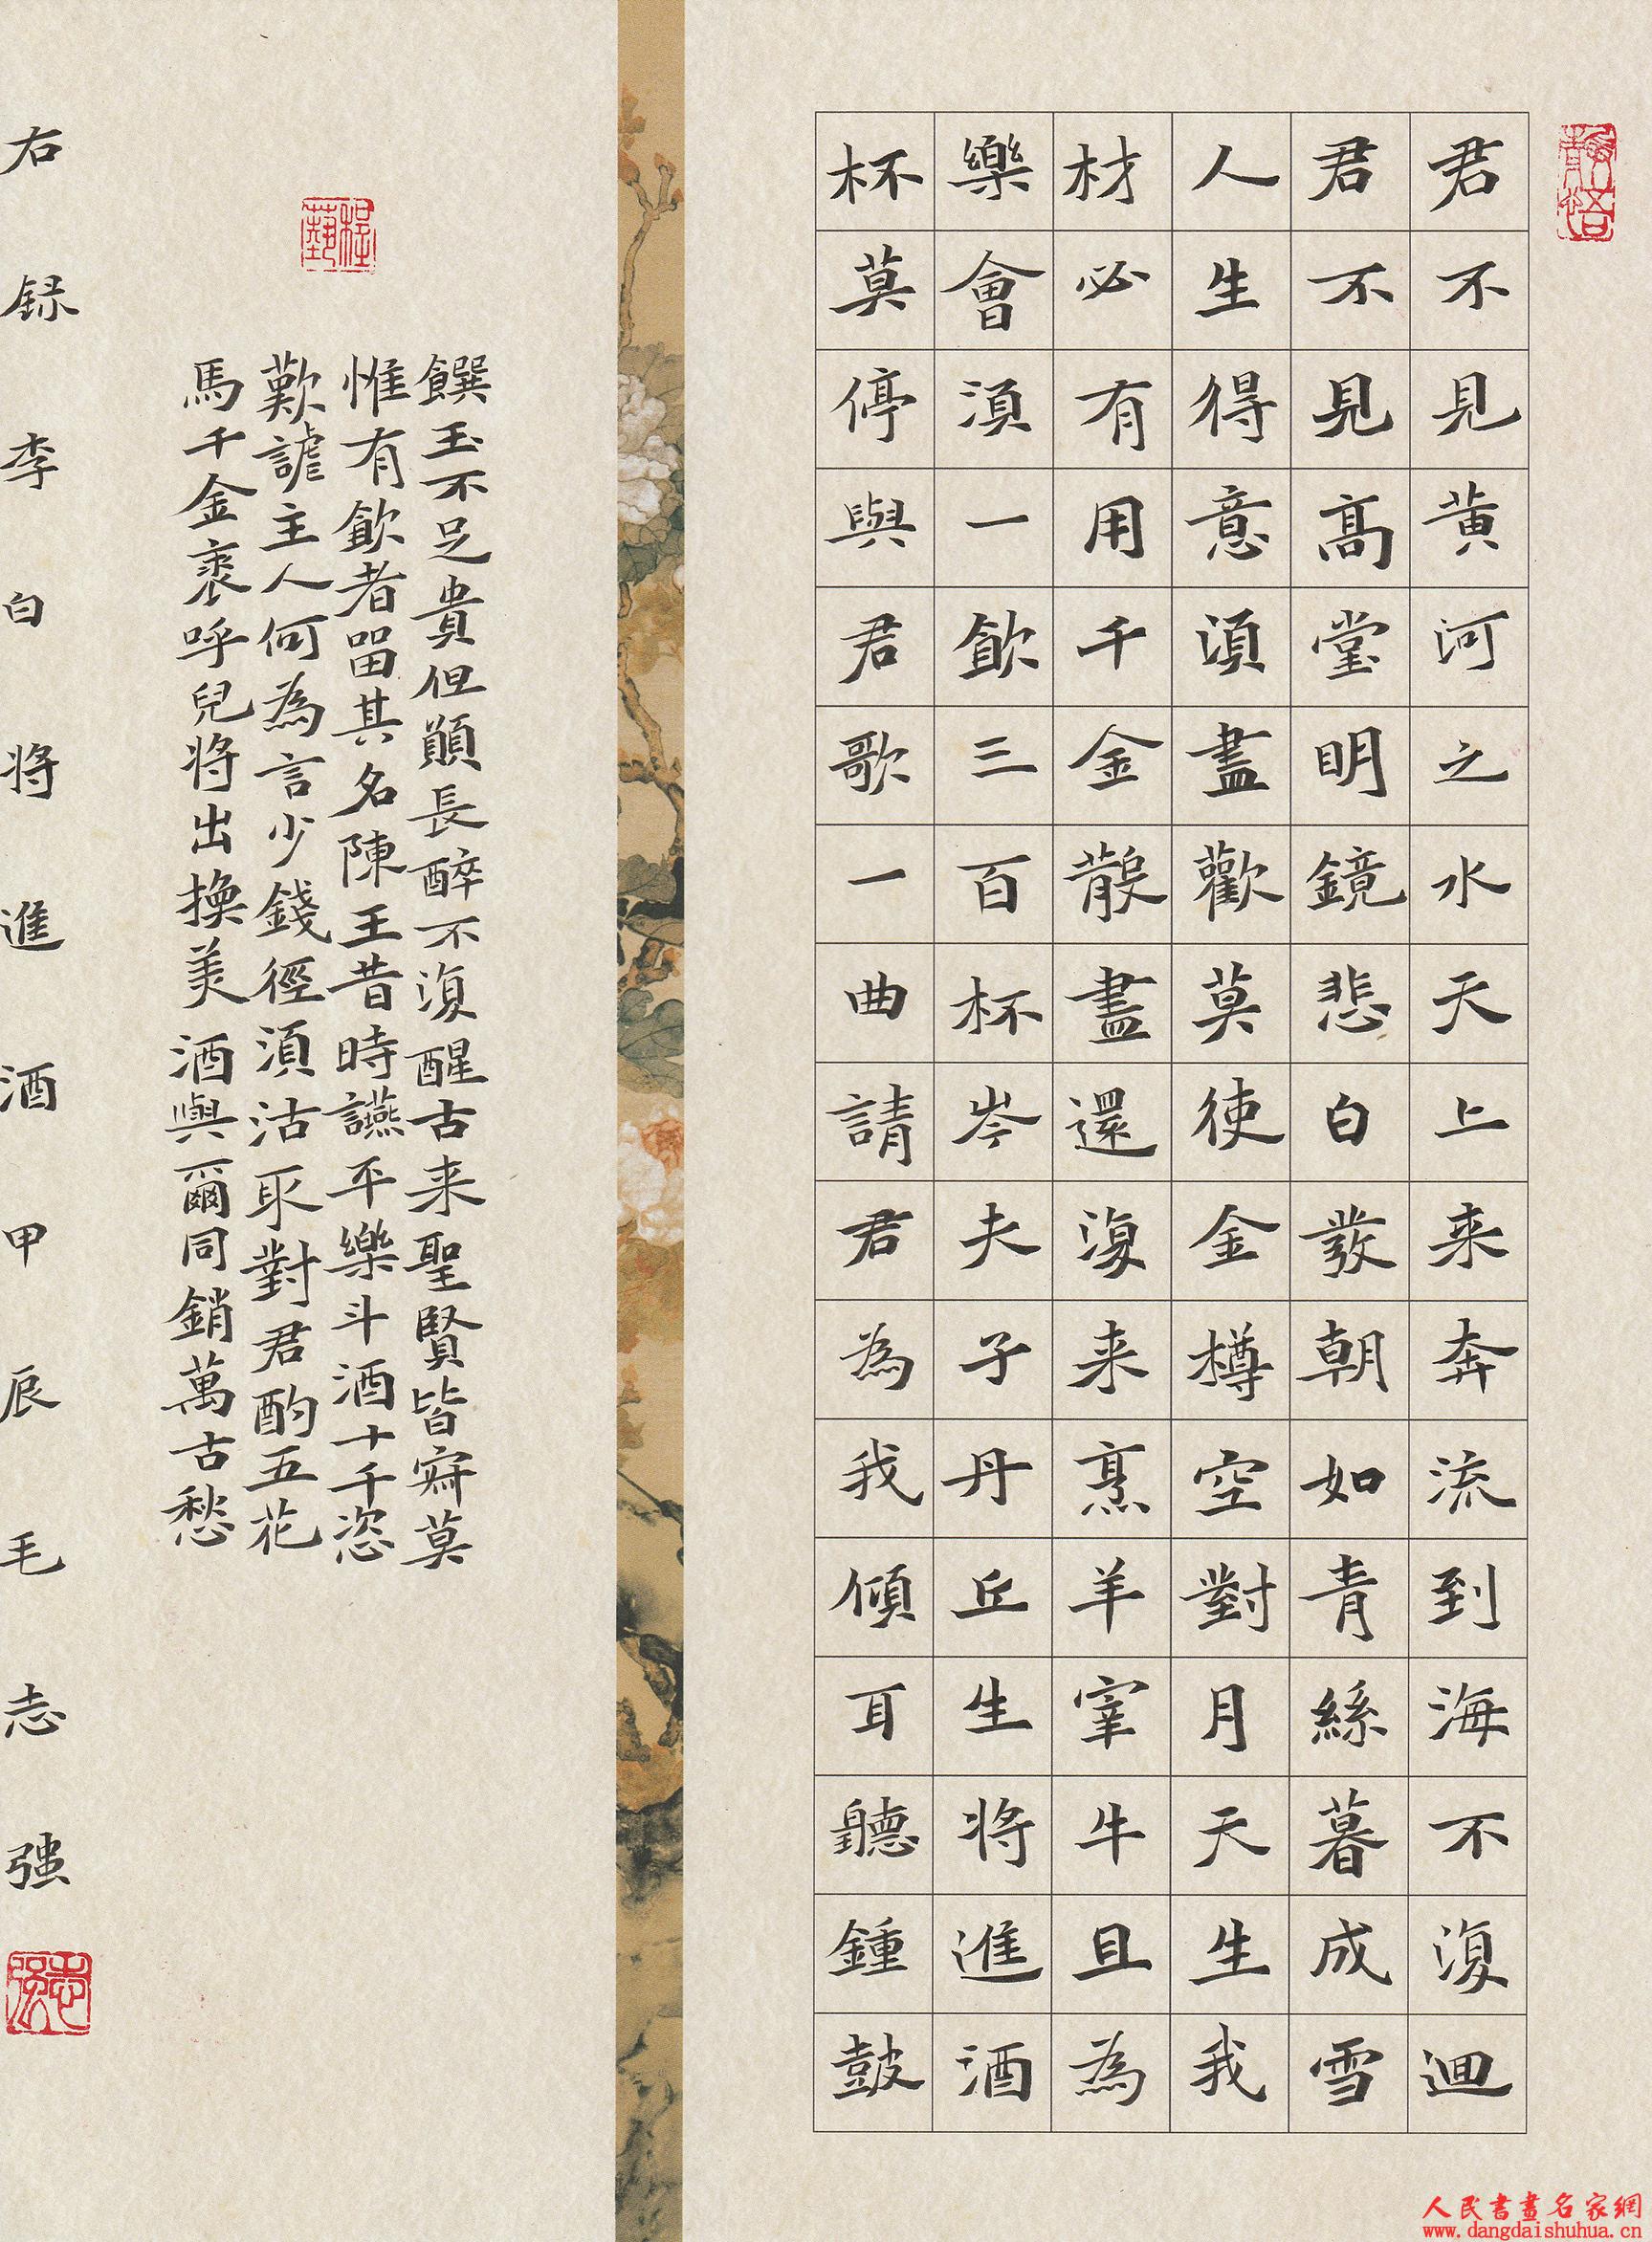 靜悟
君不見黄河之水天上来奔流到海不復迴
君不見髙堂明鏡悲白發朝如青絲暮成雪
人生得意須盡歡莫使金樽空對月天生我
材必有用千金散盡還復来烹羊宰牛且為
樂會須一飲三百杯岑夫子丹丘生将進酒
杯莫停與君歌一曲請君為我傾耳聽鍾鼓
饌玉不足貴但願長醉不復醒古来聖賢皆寂莫
惟有飲者留其名陳王昔時讌平樂斗酒十千恣
歡謔主人何為言少錢徑須沽取對君酌五花
馬千金裘呼兒将出換美酒與爾同銷萬古愁
右録李白将進酒甲辰毛志强
志强
人民書畫名家網
www.dangdaishuhua.cn